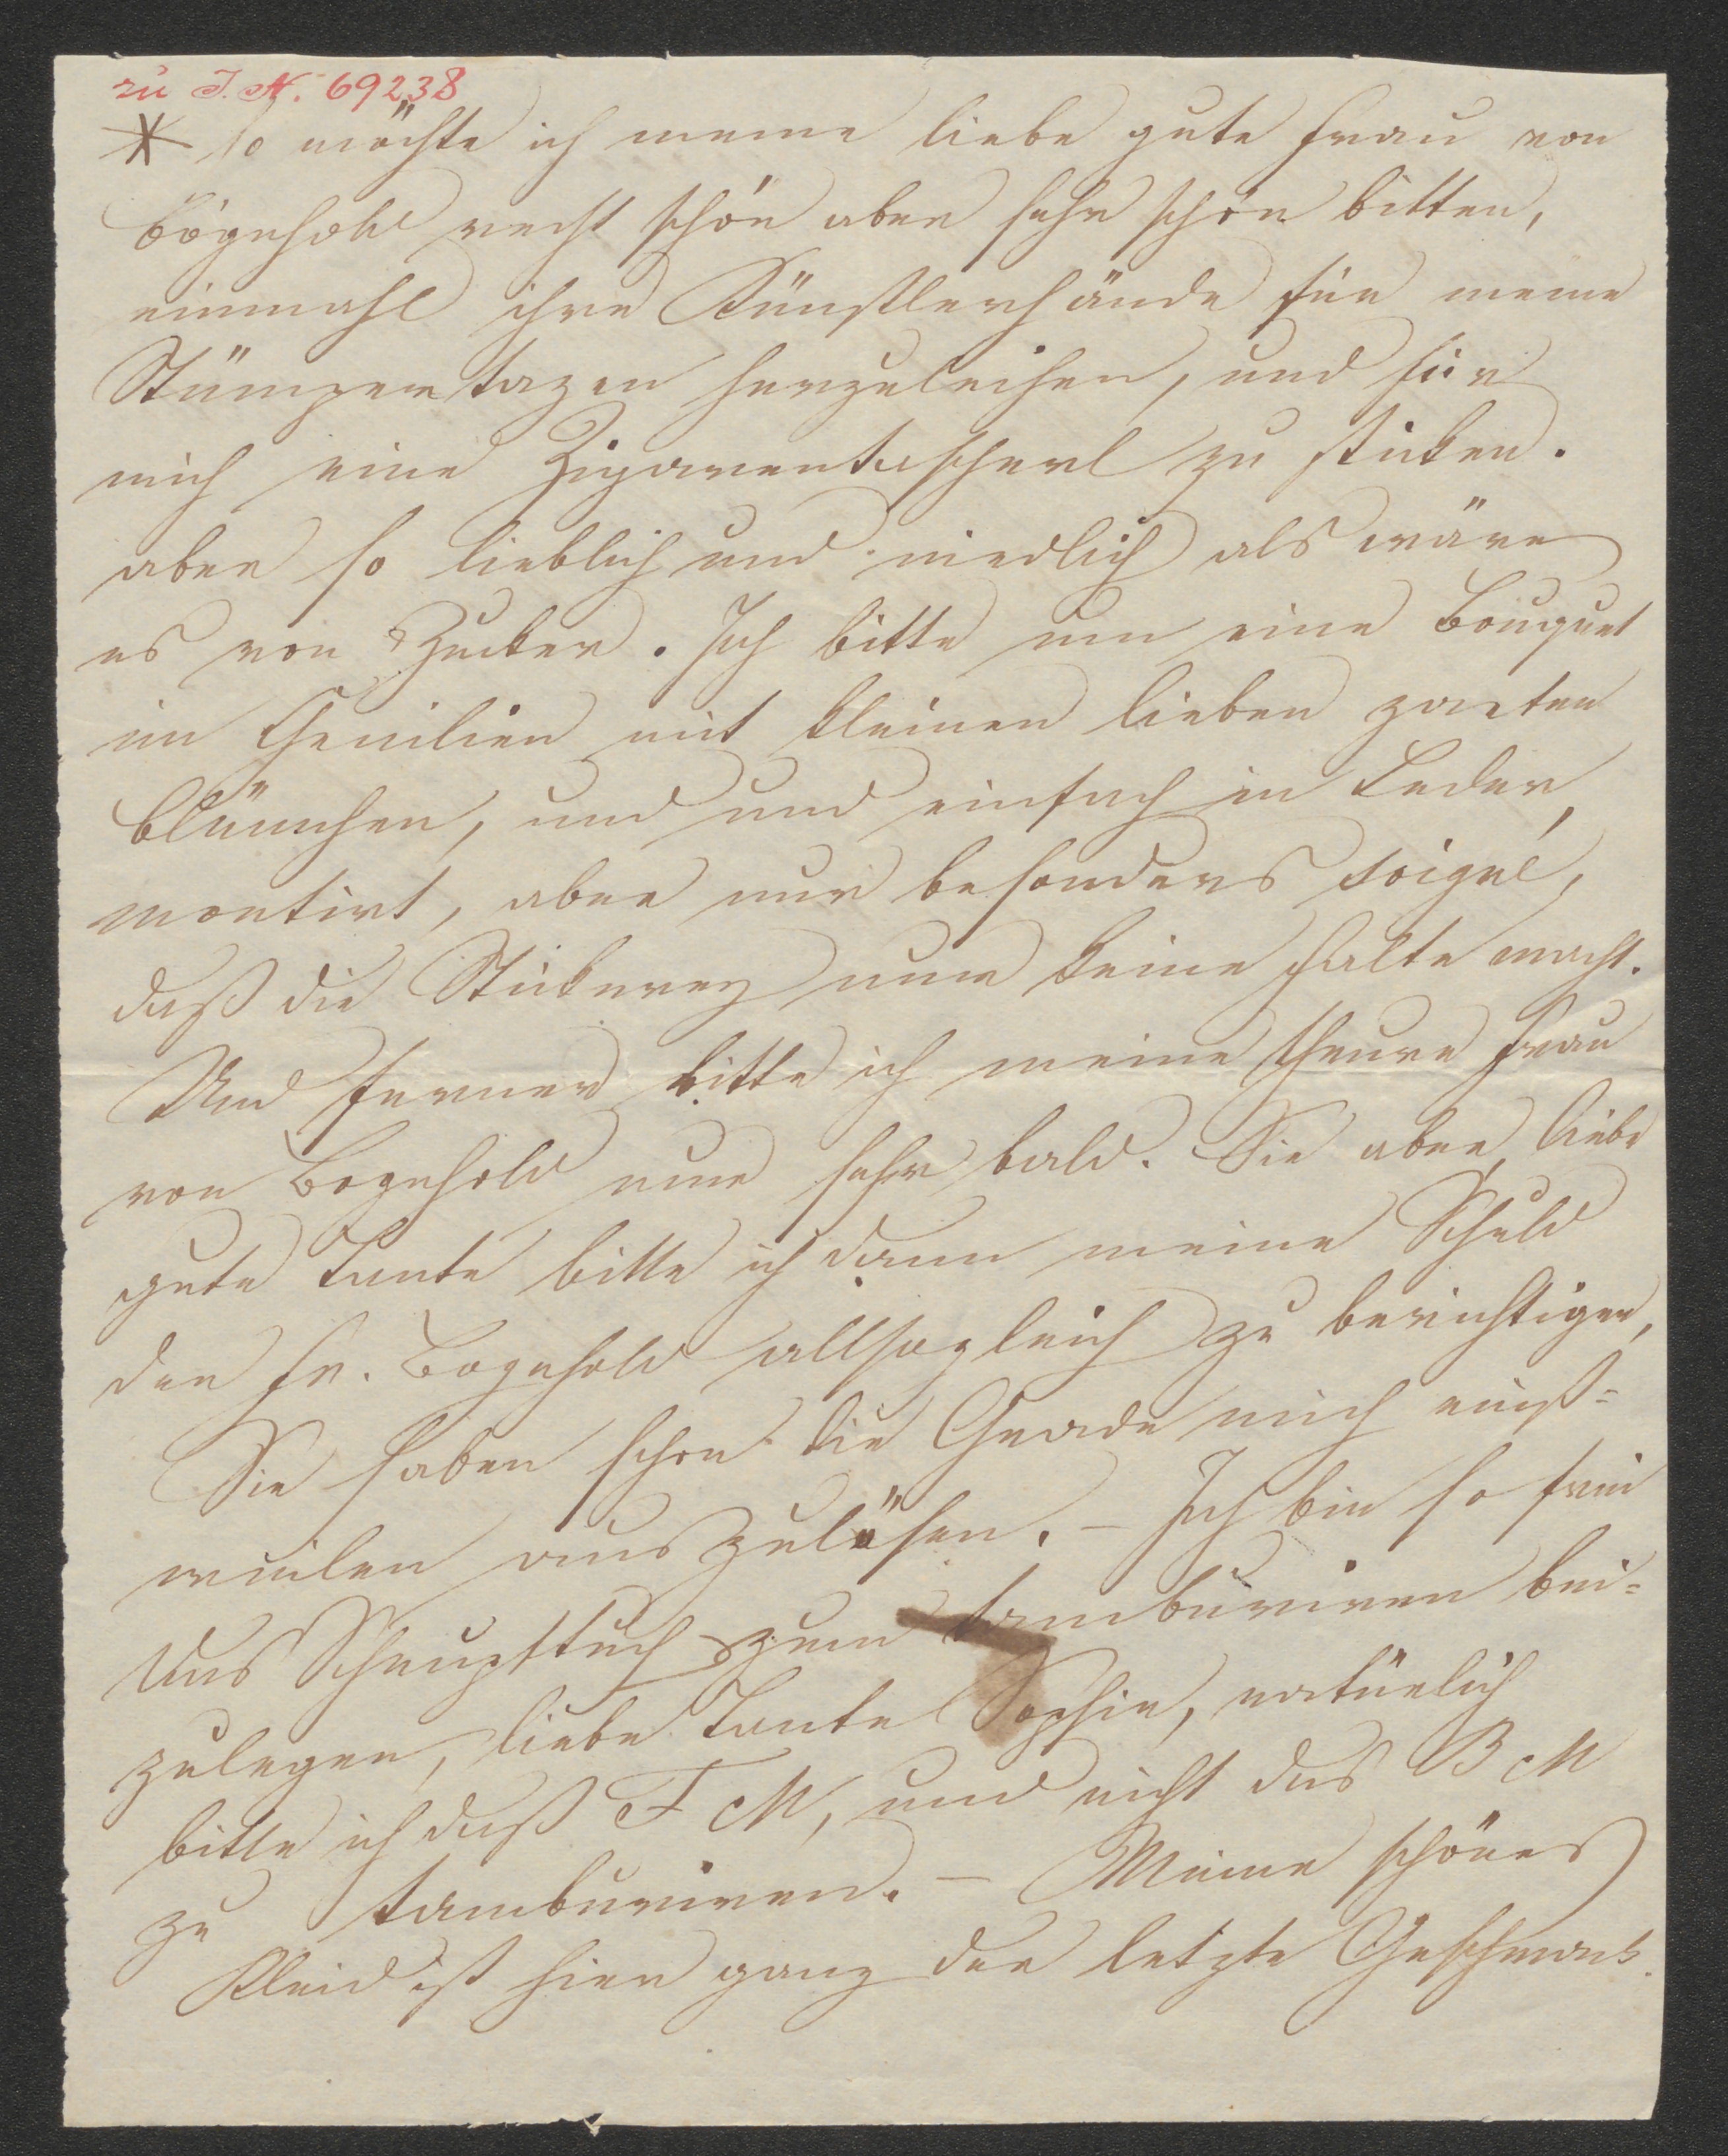 zu I. N. 69238
* so möchte ich meine liebe gute Frau von
Bögehold recht schön aber sehr schön bitten,
einmahl ihre Künstlerhände für meine
Stümpertazen herzuleihen, und für
mich eine Zigarentascherl zu sticken.
aber so lieblich und niedlich als wäre
es von Zucker. Ich bitte um eine Bouquet
in Chenilien mit kleinen lieben zarten
Blümchen, und und einfach in Leder,
montirt, aber nur besonders soigné,
daß die Stickerey nur keine Falte macht.
Und ferner bitte ich meine theure Frau
von Bogehold nur sehr bald. Sie aber, liebe
gute Tante bitte ich dann meine Schuld
der Fr. Bogehold allsogleich zu berichtigen,
Sie haben schon die Gnade mich einst=
weilen auszulösen. – Ich bin so frei
das Schnupftuch zum tamburiren bei=
zulegen, liebe Tante Sophie, natürlich
bitte ich daß F M, und nicht das B M
zu tamburiren. – Meine schönes
Kleid ist hier ganz der letzte Geschmack.